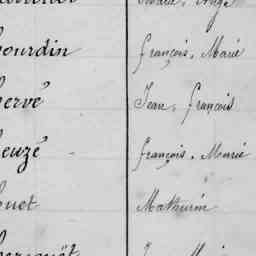 Marie, Ange
ourdin François, Marie
ervé Jean, François
euzé François, Marie
uet Mathurin